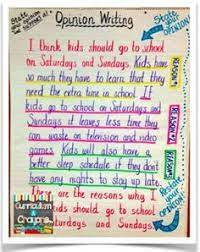 Opinion Writing
State your OPINION!
I think kids should go to school
on Saturdays and Sundays. Kids have
so much they have to learn that they
need the extra time in school. If
kids go to school on Saturdays and
Sundays it leaves less time they
can waste on television and video
games. Kids will also have a
better sleep schedule if they don't
have any nights to stay up late.
These are the reasons why I
kids should go to school
Saturdays and Sundays
REASON
REASON
REASON
Restate your OPINION!